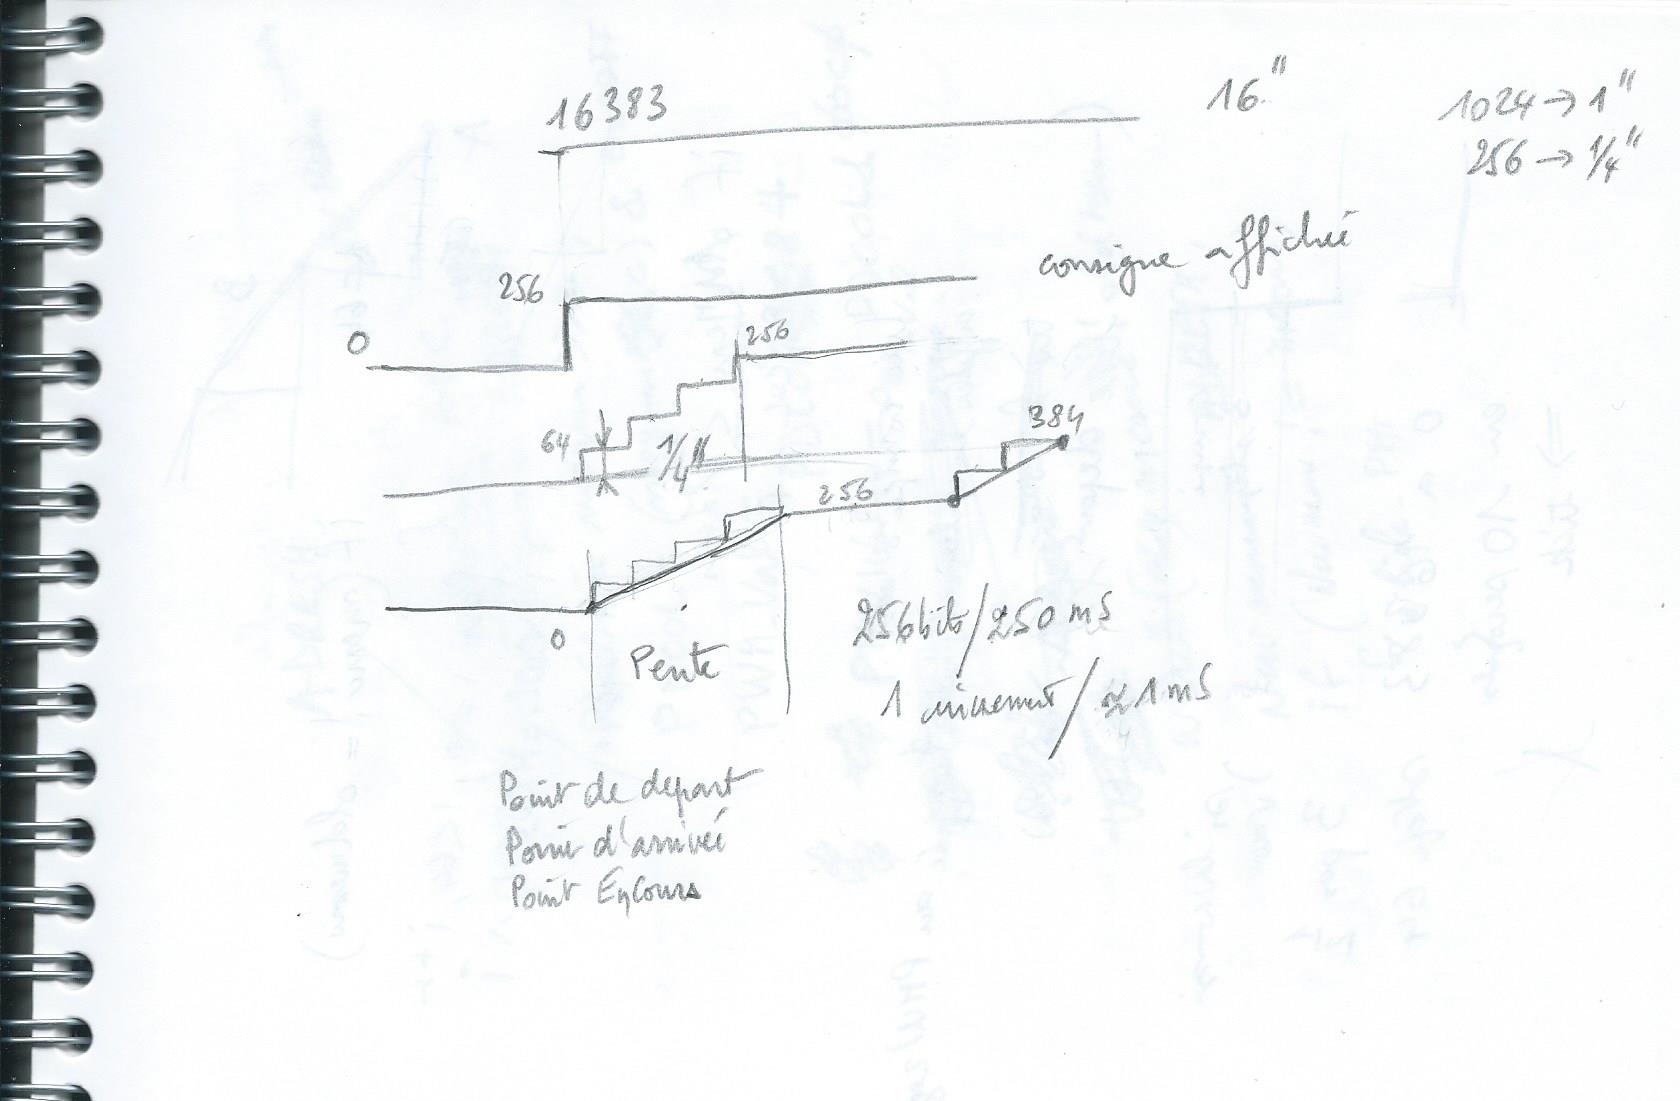 16383
16"
1024 → 1"
256 → 1/4"
consigne affichée
256
0
256
64
1/4"
384
256
0
Pente
256 bits/250 mS
1 incrément/≈1 mS
Point de départ
Point d'arrivée
Point EnCours